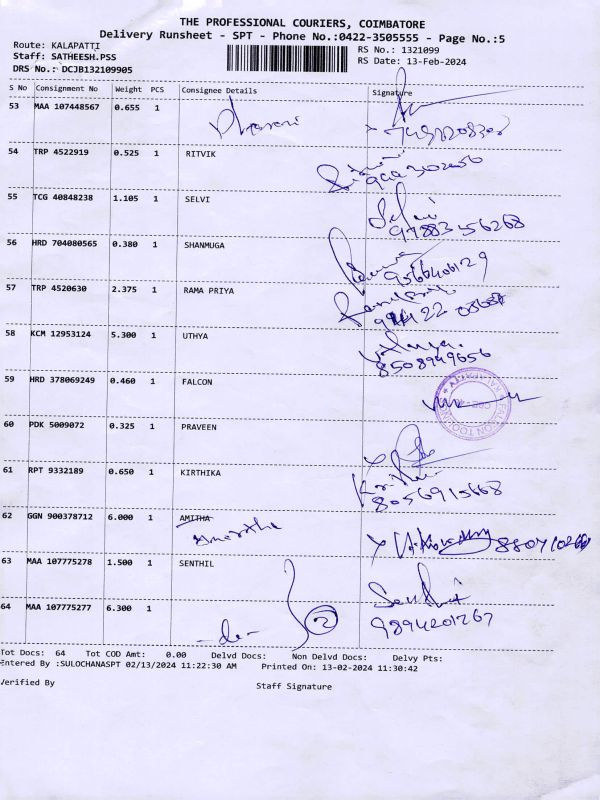 THE PROFESSIONAL COURIERS, COIMBATORE
Delivery Runsheet - SPT - Phone No.:0422-3505555 - Page No.:5
Route: KALAPATTI
Staff: SATHEESH.PSS
DRS No.: DCJB132109905
RS No.: 1321099
RS Date: 13-Feb-2024
S No Consignment No Weight PCS Consignee Details Signature
53 MAA 107448567 0.655 1
54 TRP 4522919 0.525 1 RITVIK
55 TCG 40848238 1.105 1 SELVI
Selvi
56 HRD 704080565 0.380 1 SHANMUGA
9566406129
57 TRP 4520630 2.375 1 RAMA PRIYA
58 KCM 12953124 5.300 1 UTHYA
8508949656
59 HRD 378069249 0.460 1 FALCON
60 PDK 5009072 0.325 1 PRAVEEN
61 RPT 9332189 0.650 1 KIRTHIKA
8056915668
62 GGN 900378712 6.000 1 AMITHA
63 MAA 107775278 1.500 1 SENTHIL
64 MAA 107775277 6.300 1
-do- 2
9894201267
Tot Docs: 64 Tot COD Amt: 0.00 Delvd Docs: Non Delvd Docs: Delvy Pts:
Entered By :SULOCHANASPT 02/13/2024 11:22:30 AM Printed On: 13-02-2024 11:30:42
Verified By Staff Signature